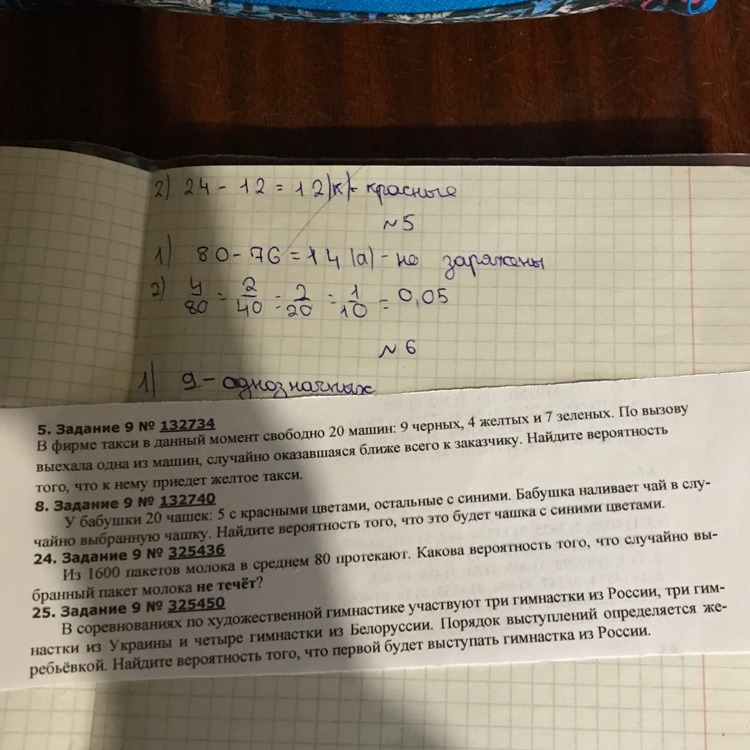 2) 24 - 12 = 12 (к) - красные
№5
1) 80 - 76 = 14 (а) - не заряжены
2) 4/80 = 2/40 = 2/20 = 1/10 = 0,05
№6
1) 9 - однозначных
5. Задание 9 № 132734
В фирме такси в данный момент свободно 20 машин: 9 черных, 4 желтых и 7 зеленых. По вызову
выехала одна из машин, случайно оказавшаяся ближе всего к заказчику. Найдите вероятность
того, что к нему приедет желтое такси.
8. Задание 9 № 132740
У бабушки 20 чашек: 5 с красными цветами, остальные с синими. Бабушка наливает чай в слу-
чайно выбранную чашку. Найдите вероятность того, что это будет чашка с синими цветами.
24. Задание 9 № 325436
Из 1600 пакетов молока в среднем 80 протекают. Какова вероятность того, что случайно вы-
бранный пакет молока не течёт?
25. Задание 9 № 325450
В соревнованиях по художественной гимнастике участвуют три гимнастки из России, три гим-
настки из Украины и четыре гимнастки из Белоруссии. Порядок выступлений определяется же-
ребьёвкой. Найдите вероятность того, что первой будет выступать гимнастка из России.